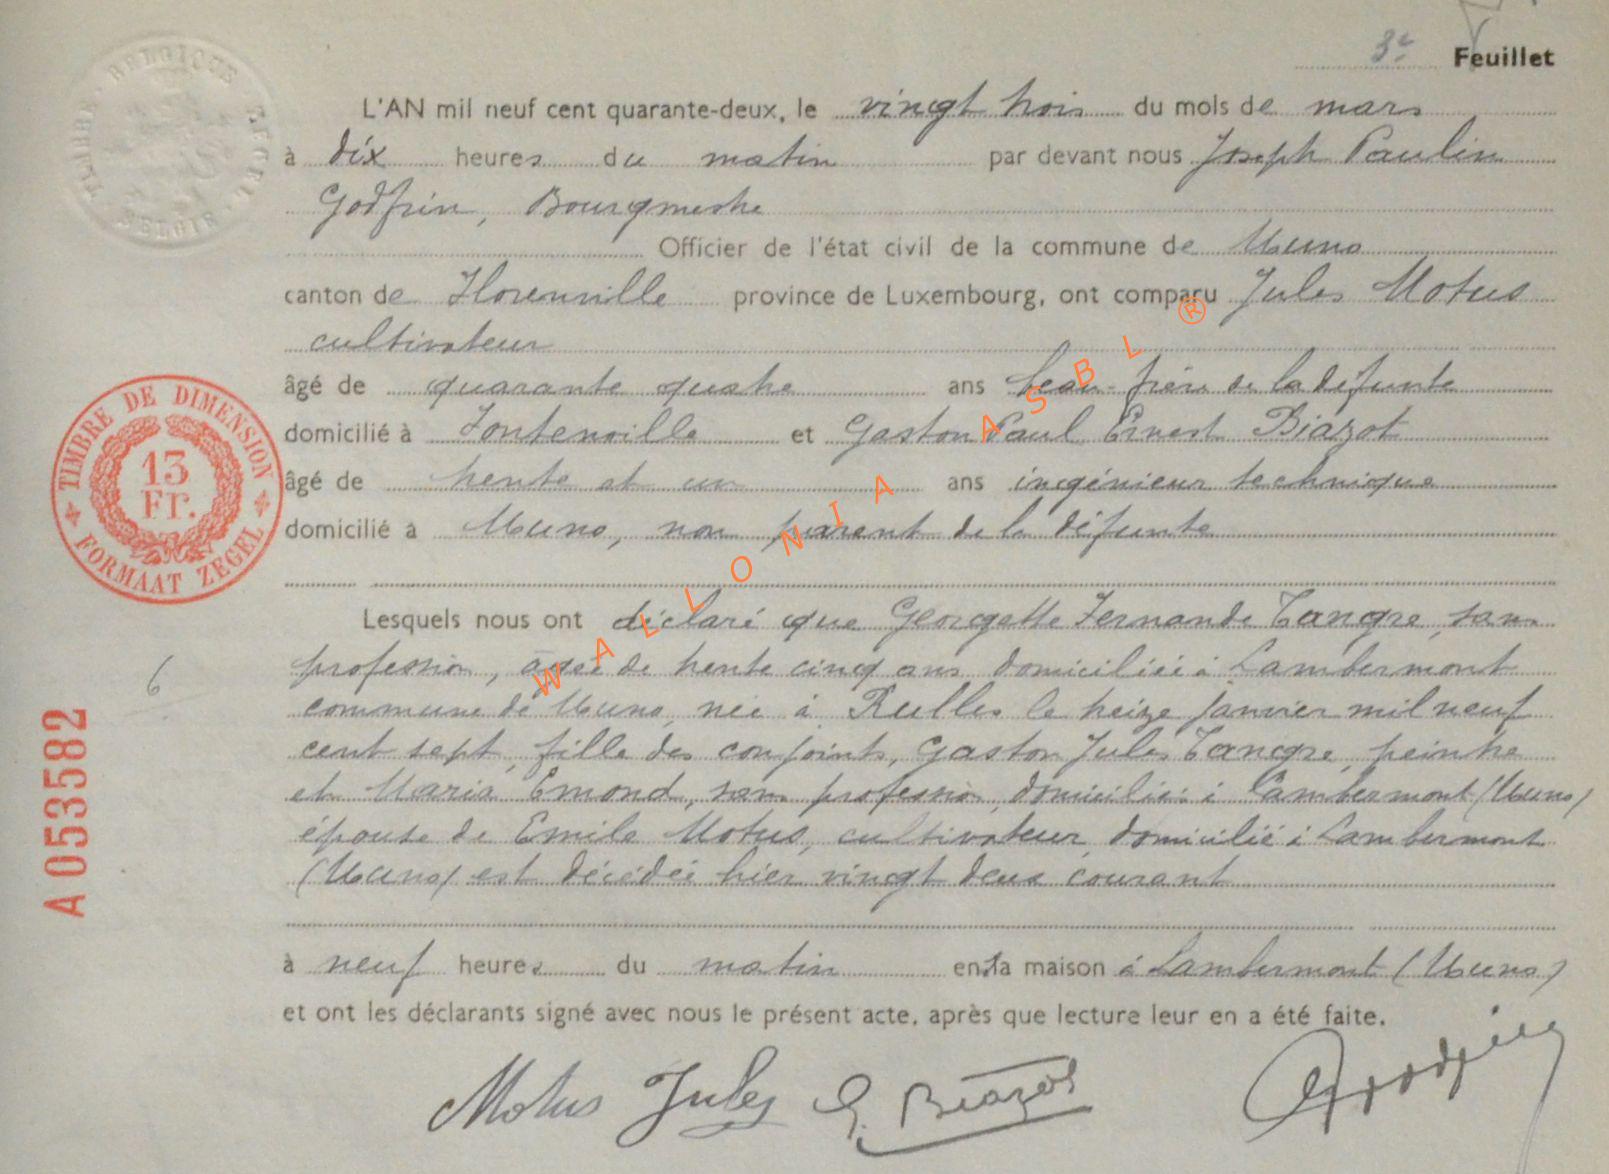 3e Feuillet
L'AN mil neuf cent quarante-deux, le vingt trois du mois de mars
à dix heures du matin par devant nous Joseph Paulin
Godfrin, Bourgmestre
Officier de l'état civil de la commune de Muno
canton de Florenville province de Luxembourg, ont comparu Jules Motus
cultivateur
âgé de quarante quatre ans beau-frère de la défunte
domicilié à Fontenoille et Gaston Paul Ernest Biazot
âgé de trente et un ans ingénieur technique
domicilié à Muno, non parent de la défunte
Lesquels nous ont déclaré que Georgette Fernande Tangre, sans
profession, âgée de trente cinq ans domiciliée à Lambermont
commune de Muno, née à Rulles le treize janvier mil neuf
cent sept, fille des conjoints, Gaston Jules Tangre, peintre
et Maria Emond, sans profession, domiciliés à Lambermont (Muno)
épouse de Emile Motus, cultivateur, domicilié à Lambermont
(Muno) est décédée hier vingt deux courant
à neuf heures du matin en sa maison à Lambermont (Muno)
et ont les déclarants signé avec nous le présent acte, après que lecture leur en a été faite.
Motus Jules G. Biazot
TIMBRE DE DIMENSION
13
Fr.
FORMAAT ZEGEL
6
A 053582
BELGIQUE
BELGIE
WALLONIA ASBL ®